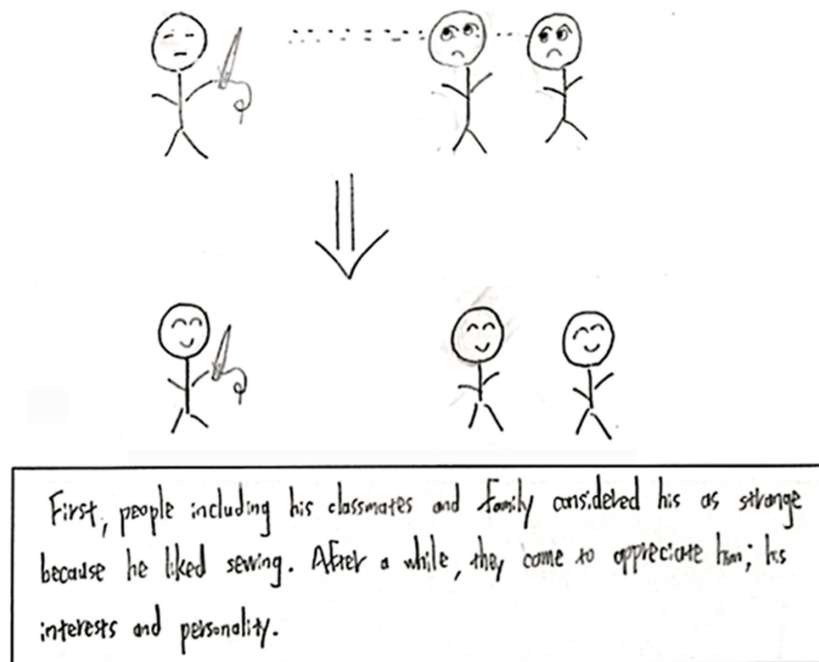 First, people including his classmates and family considered his as strange
because he liked sewing. After a while, they come to appreciate him; his
interests and personality.